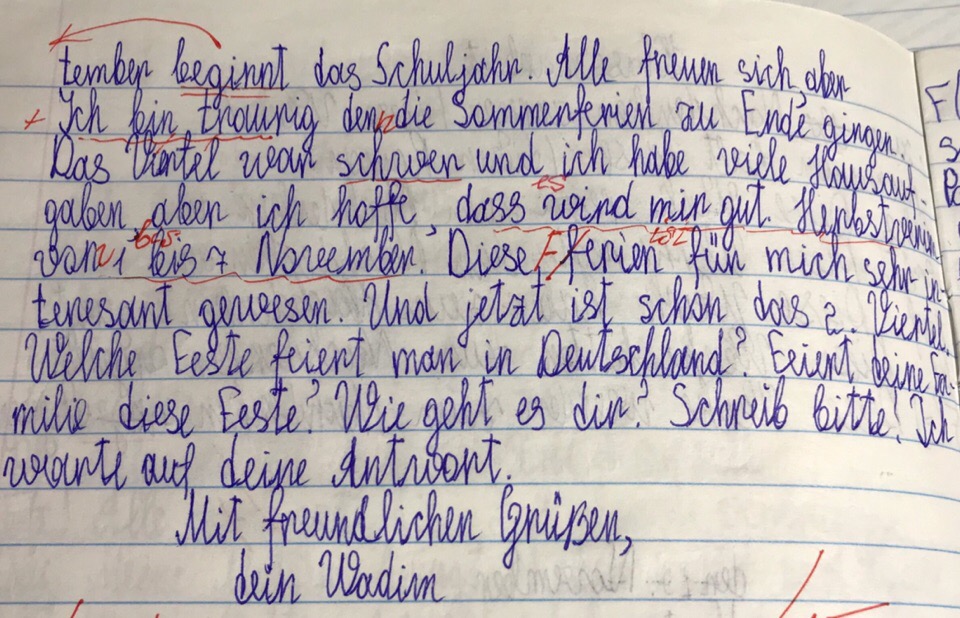 tember beginnt das Schuljahr. Alle freuen sich, aber
Ich bin traurig denn die Sommerferien zu Ende gingen.
Das Viertel war schwer und ich habe viele Hausauf-
gaben, aber ich hoffe, dass es wird mir gut. Herbstferien
von 1 bis 7 November. Diese Ferien ist für mich sehr in-
teresant gewesen. Und jetzt ist schon das 2. Viertel.
Welche Feste feiert man in Deutschland? Feiert deine Fa-
milie diese Feste? Wie geht es dir? Schreib bitte! Ich
warte auf deine Antwort.
Mit freundlichen Grüßen,
dein Wadim